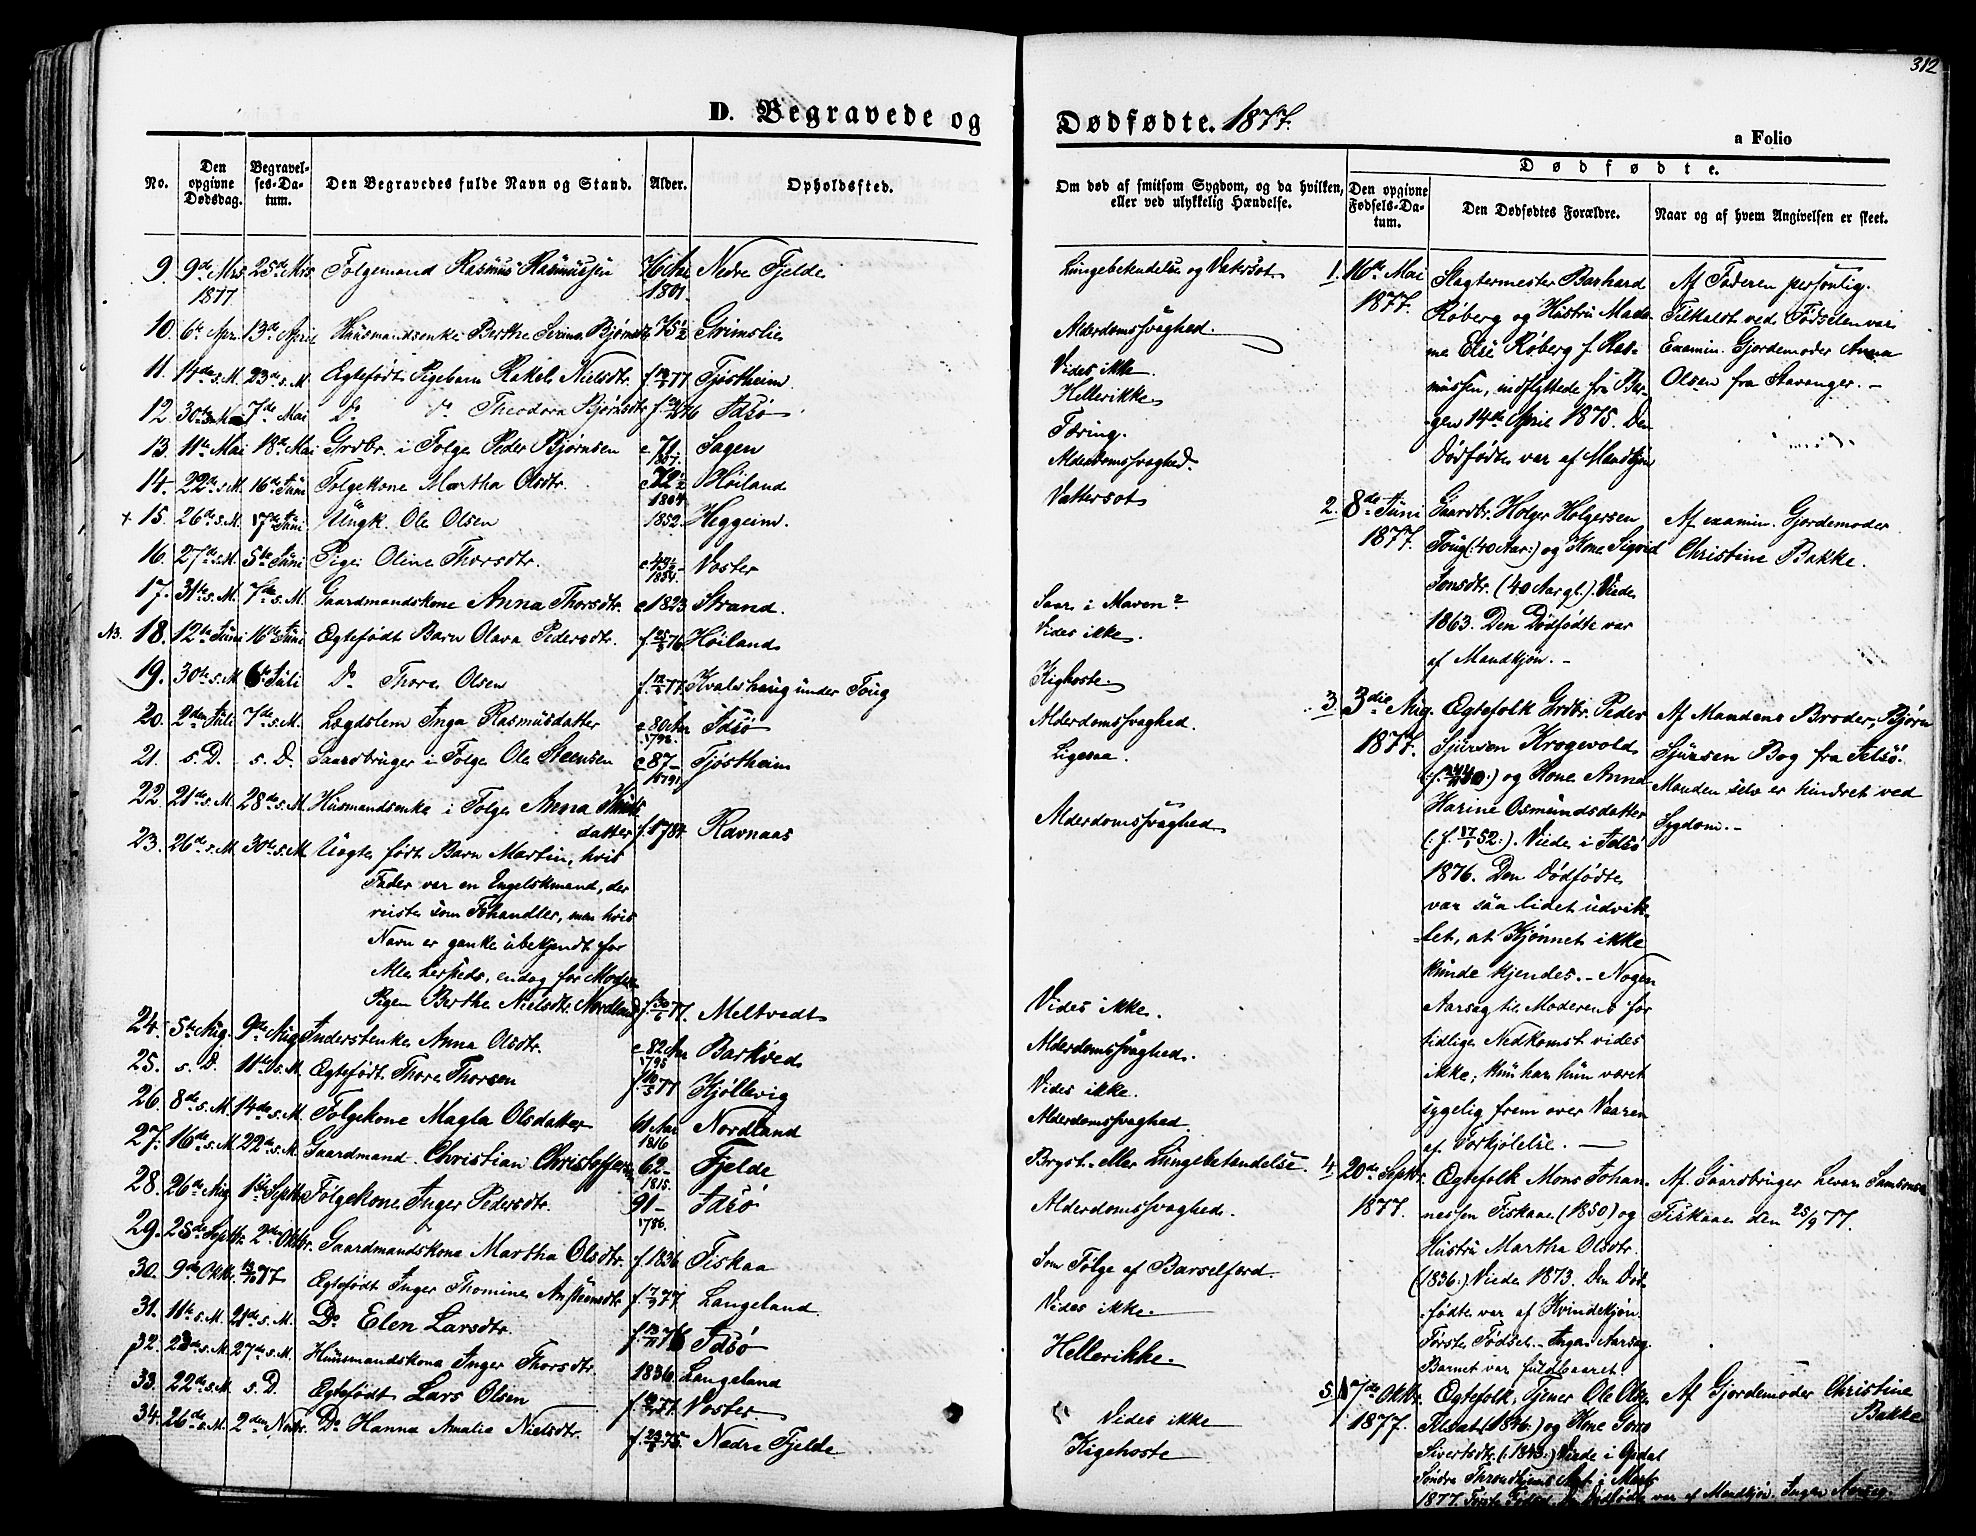 312
D. Begravede og Dødfødte. 1877.
a Folio
No.
Den opgivne Dødsdag.
Begravelses-Datum.
Den Begravedes fulde Navn og Stand.
Alder.
Opholdssted.
Om død af smitsom Sygdom, og da hvilken, eller ved ulykkelig Hændelse.
Dødfødte.
Den opgivne Fødsels-Datum.
Den Dødfødtes Forældre.
Naar og af hvem Angivelsen er skeet.
9. 9de Mrs 1877 25de Mrs Følgemand Rasmus Rasmussen 76 Aar 1801 Nedre Fjelde
10. 6te Apr. 13de April Huusmandsenke Berthe Serine Bjørnsdtr. 75½ Grimslie
11. 14de s. M. 23de s. M. Ægtefødt Pigebarn Rakel Nielsdtr. Tjøstheim
12. 30te s. M. 7de Mai Do Do Theodora Bjørnsdtr. Idsø
13. 11te Mai 18de Mai Grdbr. i Følge Peder Bjørnsen c 71 Sagen
14. 22de s. M. 16de Juni Følgekone Martha Olsdtr. c 72½ 1804 Høiland
+ 15. 26de s. M. 17de Juni Ungk. Ole Olsen 1852 Heggeim.
16. 27de s. M. 5te Juni Pige Oline Thorsdtr. 1854. Voster
17. 31te s. M. 7de s. M. Gaardmandskone Anna Thorsdtr. c 1823 Strand.
NB. 18. 12te Juni 16de Juni Ægtefødt Barn Olava Pedersdtr. Høiland
19. 30te s. M. 6te Juli Do Thore Olsen Kvalshaug under Toug
20. 2den Juli 7de s. M. Lægdslem Inga Rasmusdatter c 80 Aar Idsø
21. s. D. s. D. Gaardbruger i Følge Ole Steensen c 87 Tjøstheim
22. 21de s. M. 28de s. M. Husmandsenke i Følge Anna
datter f. 1784. Ravnaas
23. 26de s. M. 30te s. M. Uægte født Barn Martin, hvis
Fader var en Engelskmand, der
reiste som Fehandler, men hvis
Navn er ganske ubekjendt for
Alle hersteds, endog for Moderen
Pigen Berthe Nielsdtr. Nordland f. 30/6 77. Meltvedt
24. 5te Aug. 9de Aug. Inderstenke Anna Olsdtr. c 82 Aar 1795 Barkved
25. s. D. 11te s. M. Ægtefødt Thore Thorsen Kjøllevig
26. 8de s. M. 14de s. M. Følgekone Magla Olsdatter 61 Aar 1816 Nordland
27. 16de s. M. 22de s. M. Gaardmand Christian Christoffersen 62 1815. Fjelde
28. 26de Aug 1ste Septbr. Følgekone Inger Pedersdtr. 91 1786. Idsø
29. 25de Septbr. 2den Oktbr. Gaardmandskone Martha Olsdtr. f. 1836. Fiskaa
30. 9de Oktbr. Ægtefødt Inger Thomine f. 7/9 77. Langeland
31. 11te s. M. 21de s. M. Do Elen Larsdtr. Idsø
32. 23de s. M. 27de s. M. Huusmandskone Inger Thorsdtr. 1836. Langeland
33. 22de s. M. s. D. Ægtefødt Lars Olsen Voster
34. 26de s. M. 2den Novbr. Do Hanna Amalia Nielsdtr. Nedre Fjelde
Lungebetændelse og Vatersot
Alderdomssvaghed.
Vides ikke.
Heller ikke.
Tæring.
Alderdomssvaghed.
Vattersot
Saar i Maven?
Vides ikke.
Kighoste.
Alderdomssvaghed.
Ligesaa.
Alderdomssvaghed.
Vides ikke.
Alderdomssvaghed.
Vides ikke.
Alderdomssvaghed.
Bryst- eller Lungebetændelse.
Alderdomssvaghed.
Som Følge af Barselfærd.
Vides ikke.
Heller ikke.
Vides ikke
Kigehoste
1. 16de Mai 1877.
Slagtermester Barhard
Røberg og Hustru Mada-
me Else Røberg f. Ras-
mussen, indflyttede fra Ber-
gen 14de April 1875. Den
Dødfødte var af Mandkjøn
Af Faderen personlig.
Tilkaldt ved Fødselen var
Examin. Gjordemoder Anna
Olsen fra Stavanger.
2. 8de Juni 1877.
Gaardbr. Holger Holgersen
Toug (: 40 Aar :) og Kone Sigrid
Jonsdtr. (40 Aar gl.). Viede
1863. Den Dødfødte var
af Mandkjøn.
Af examin. Gjordemoder
Christine Bakke.
3. 3die Aug. 1877.
Ægtefolk Grdbr. Peder
Sjursen Krogevold
og Kone Anna
Karine Osmundsdatter
(: f. 17/1 52 :). Viede i Jelsø
1876. Den Dødfødte
var saa lidet udvik-
let, at Kjønnet ikke
kunde kjendes. Nogen
Aarsag til Moderens for
tidlige Nedkomst vides
ikke; kun har hun været
sygelig frem over Vaaren
af Forkjølelse.
Af Mandens Broder, Bjørn
Sjursen Bog fra Jelsø.
Manden selv er hindret ved
Sygdom.
4. 20de Septbr. 1877.
Ægtefolk Mons Johan-
nessen Fiskaa (1850) og
Hustru Martha Olsdtr.
(1836.) Viede 1873. Den Død-
fødte var af Kvindekjøn.
Første Fødsel. Ingen Aarsag.
Barnet var fuldbaaret.
Af Gaardbruger Levar Samsonsen
Fiskaa den 25/9 77.
5. 7de Oktbr. 1877.
Ægtefolk, Tjener Ole Olsen
og Kone
Sivertsdtr. Viede i Opdal
Søndre Throndhjems Amt i Marts
1877. Første Fødsel. Den Dødfødte var af Mandkjøn. Ingen Aarsag.
Af Gjordemoder Christine
Bakke